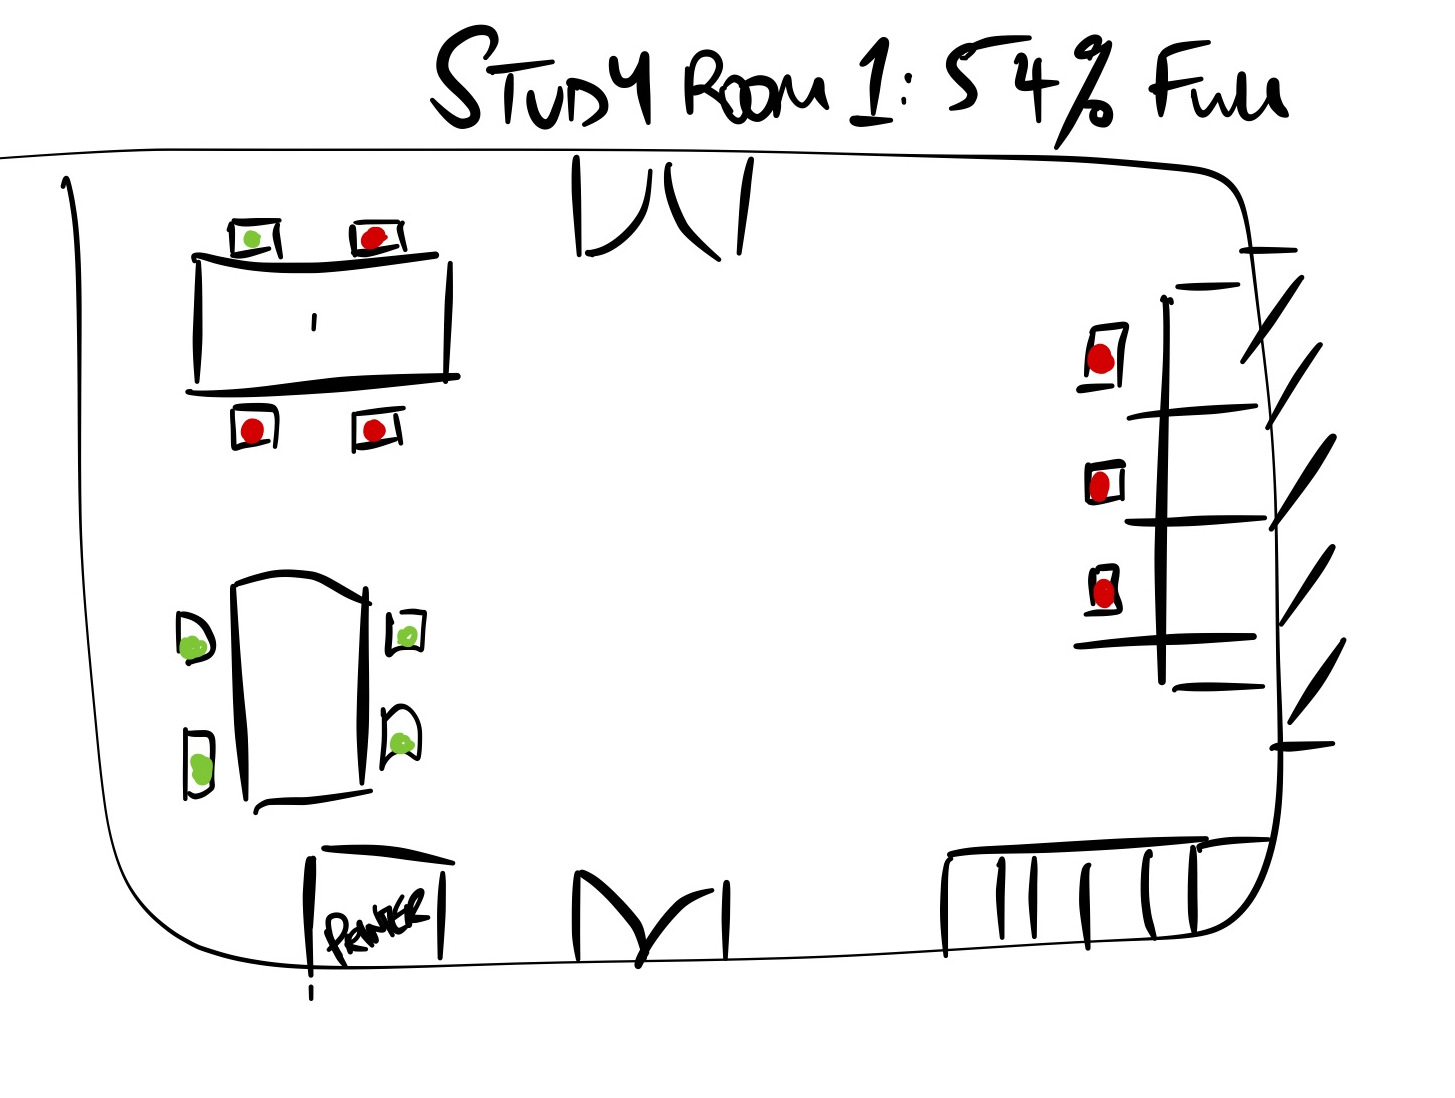 STUDY ROOM 1: 54% FULL
PRINTER